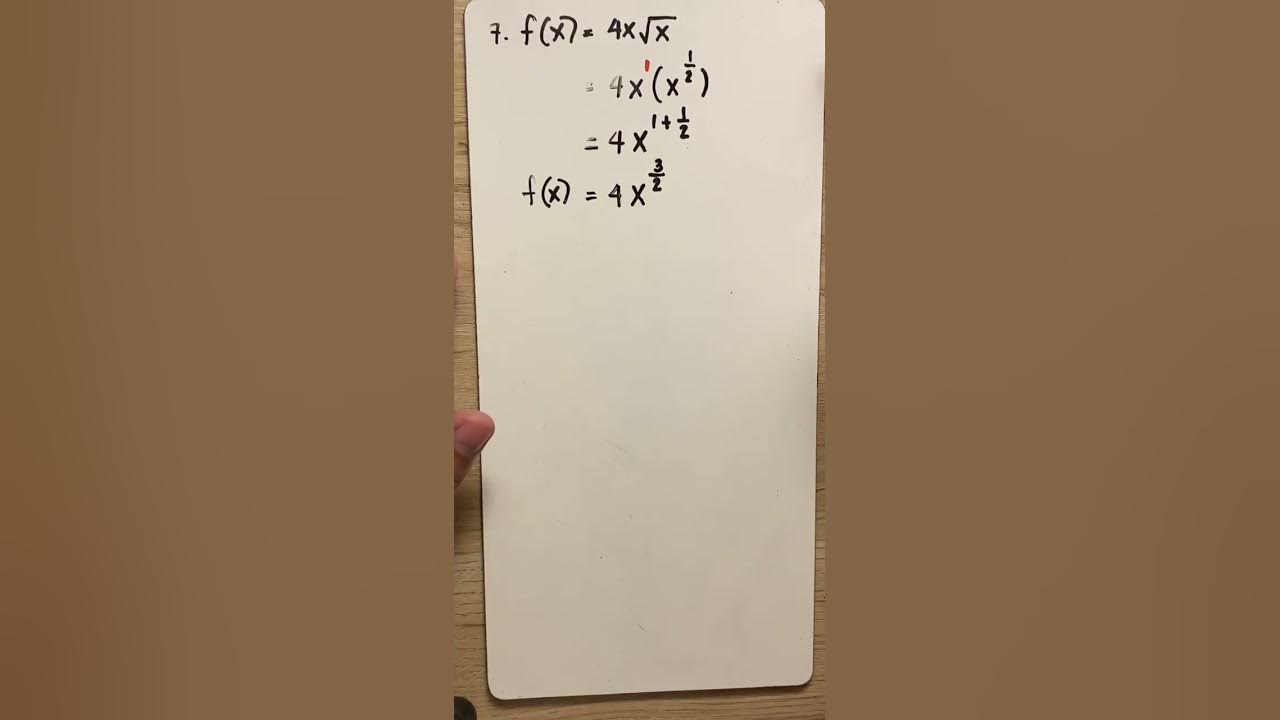 7. f(x) = 4x√x
= 4x¹(x^½)
= 4x^(1+½)
f(x) = 4x^(3/2)